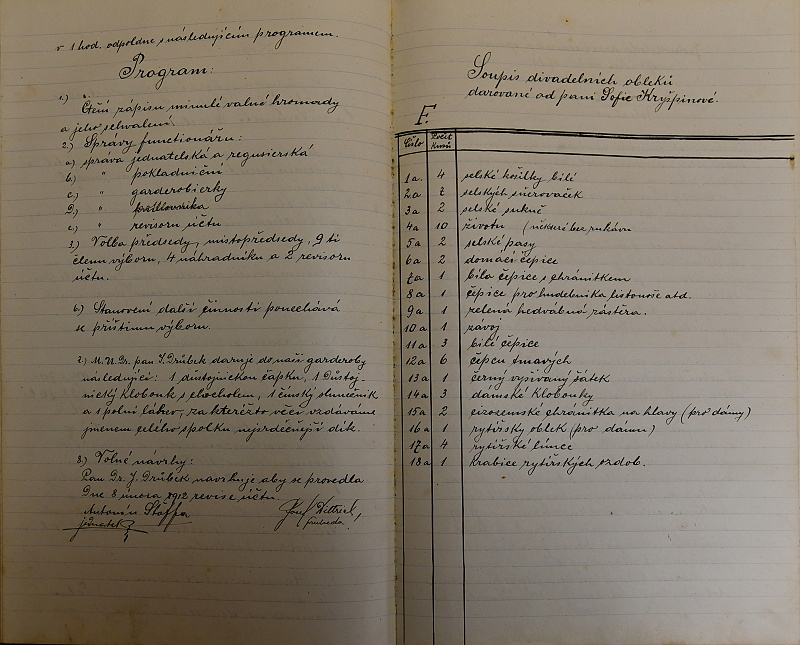 v 1 hod. odpoldne s následujícím programem.
Program:
1.) Čtení zápisu minulé valné hromady
a jeho schválení.
2.) Správy functionářu:
a) správa jednatelská a regisierská
b.) " pokladniční
c.) " garderobierky
D.) "
e.) " revisoru účtu
3.) Volba předsedy, místopředsedy, 9 ti
členu výboru, 4 náhradníku a 2 revisoru
účtu.
6.) Stanovení další činnosti ponechává
se příštímu výboru.
7.) M.U.Dr. pan J. Drůbek daruje do naší garderoby
následující: 1 důstojnickou čapku, 1 důstoj-
nický klobouk s chocholem, 1 čínský slunečník
a 1 polní láhev, za kteréžto věci vzdáváme
jménem celého spolku nejsrdečnější dík.
8.) Volné návrhy:
Pan Dr. J. Drůbek navrhuje aby se provedla
Dne 8 února 1912 revise účtu.
Antonín Staffa
jednatel
Josef
předseda
Soupis divadelních obleků
darované od paní Sofie Kryšpínové.
F.
Číslo Počet kusů
1a 4 selské košilky bílé
2a 7 selských šněrovaček
3a 2 selské sukně
4a 10 životu (některé bez rukávu
5a 2 selské pasy
6a 2 domácí čepice
7a 1 bílá čepice s chránítkem
8a 1 čepice pro hudebníka listonoše atd.
9a 1 zelená hedvábná zástěra.
10a 1 závoj
11a 3 bílé čepice
12a 6 čepcu tmavých
13a 1 černý vyšívaný šátek
14a 3 dámské klobouky
15a 2 cizozemské chránítka na hlavy (pro dámy)
16a 1 rytířský oblek (pro dámu)
17a 4 rytířské límce
18a 1 krabice rytířských ozdob.